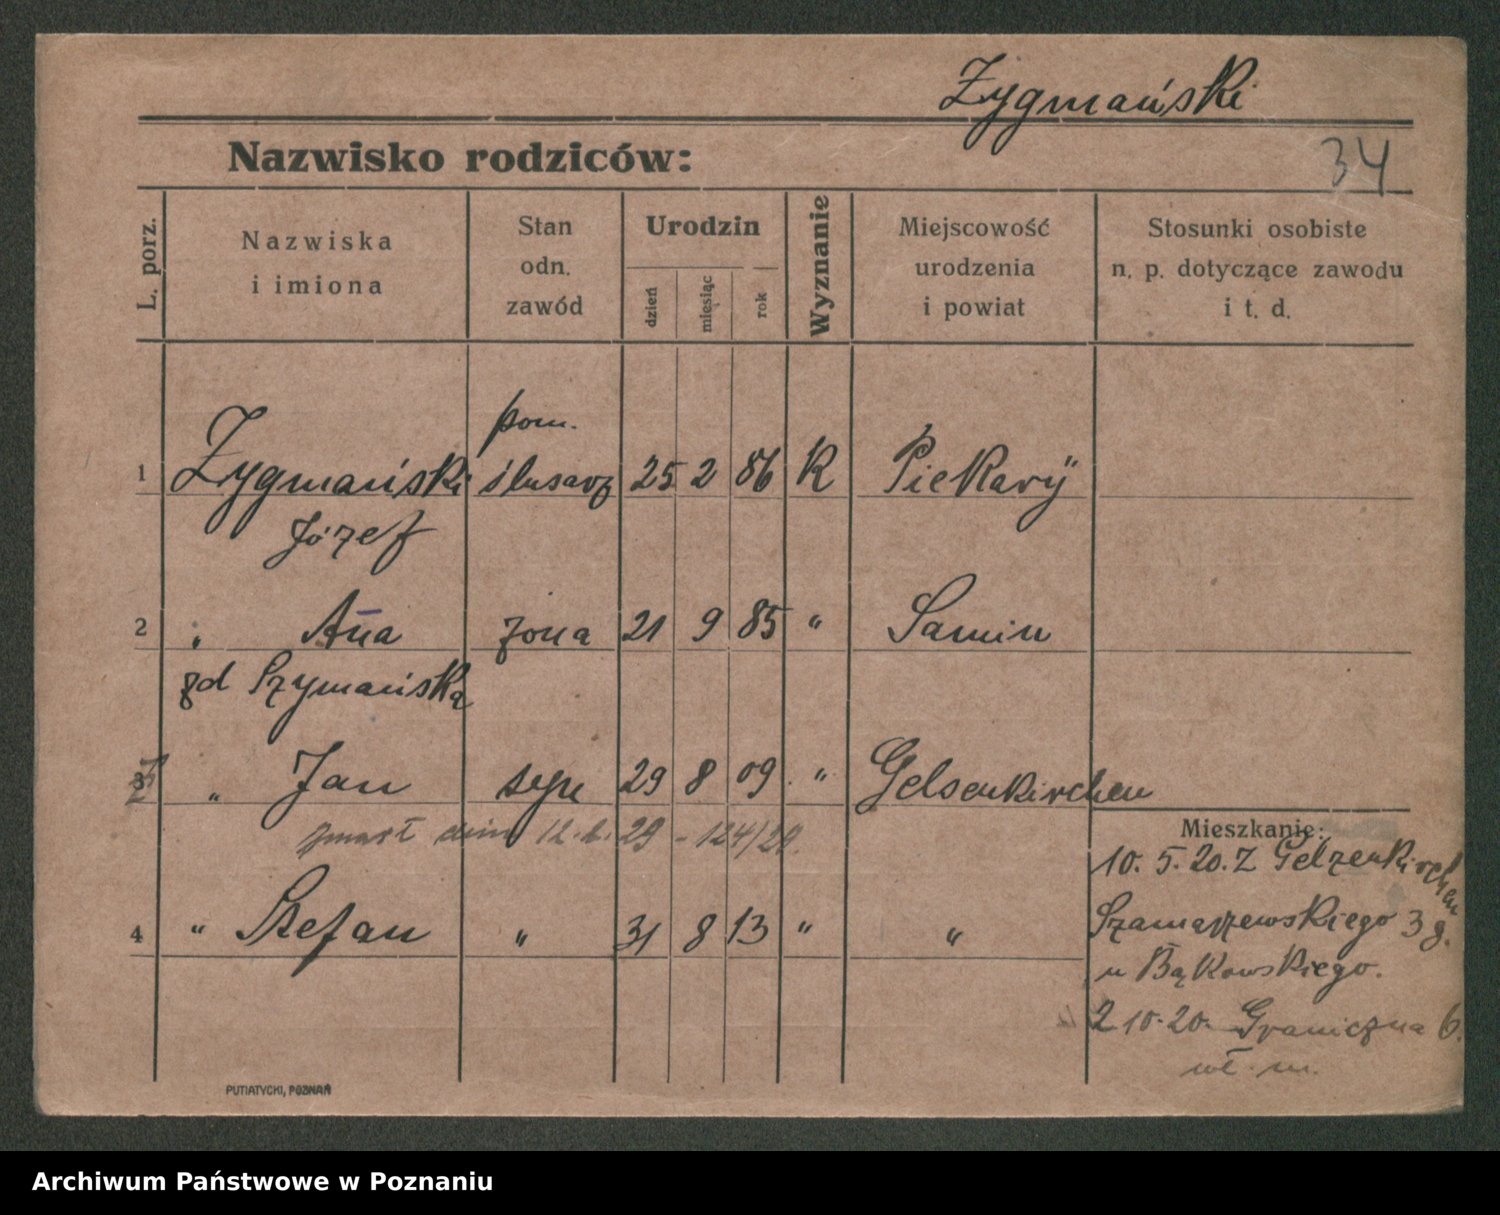 Zygmański
Nazwisko rodziców:
34
L. porz.
Nazwiska
i imiona
Stan
odn.
zawód
Urodzin
dzień
miesiąc
rok
Wyznanie
Miejscowość
urodzenia
i powiat
Stosunki osobiste
n. p. dotyczące zawodu
i t. d.
pom.
1 Zygmański ślusarz 25 2 86 K Piekary
Józef
2 " Anna żona 21 9 85 " Samin
zd Szymańska
3 " Jan syn 29 8 09 " Gelsenkirchen
zmarł dnia 12. 29 - 124/29.
4 " Stefan " 31 8 13 " "
Mieszkanie:
10. 5. 20. Z Gelzenkirchen
Szamarzewskiego 3 g.
u Bąkowskiego.
2 10. 20. Graniczna 6.
wł. m.
PUTIATYCKI, POZNAŃ
Archiwum Państwowe w Poznaniu